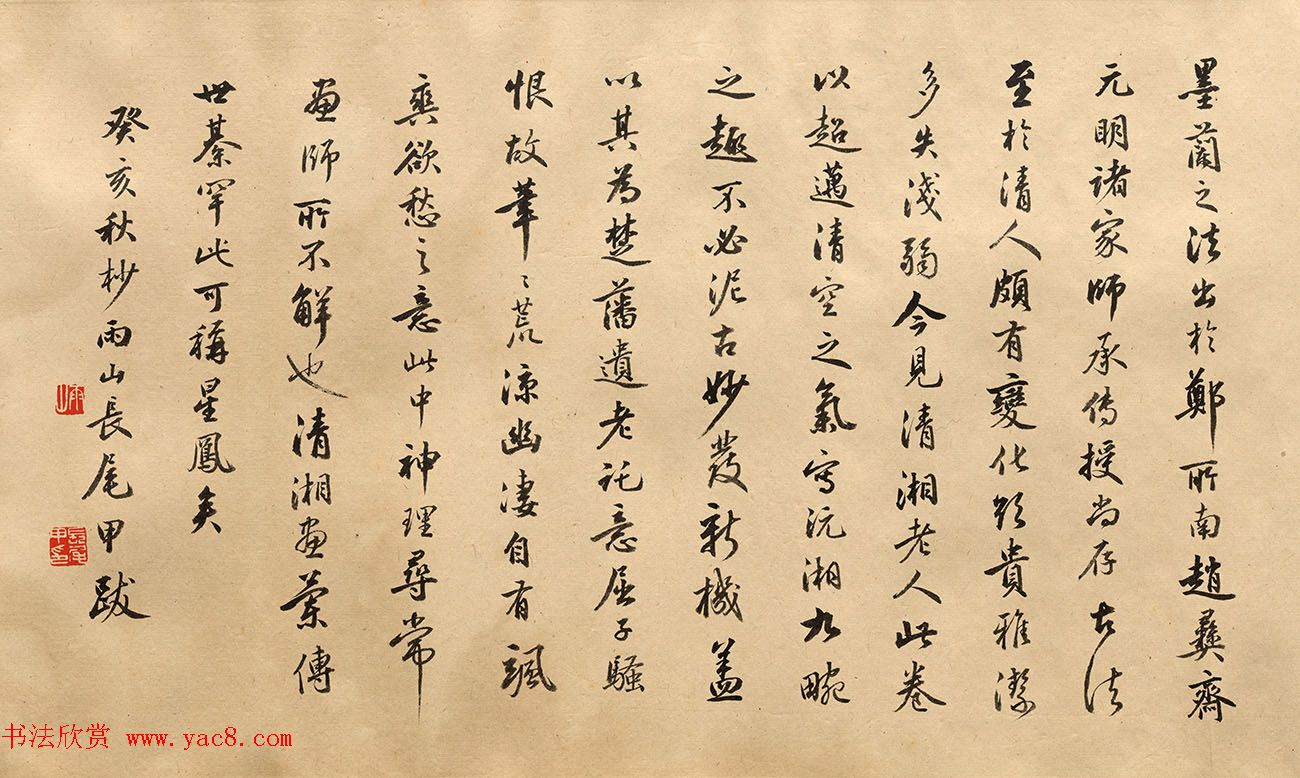 墨蘭之法出於鄭所南趙彝齋
元明諸家師承傳授尚存古法
至於清人頗有變化歟貴雅潔
多失淺弱今見清湘老人此卷
以超邁清空之氣寫沅湘九畹
之趣不必泥古妙發新機蓋
以其為楚藩遺老託意屈子騷
恨故筆〻荒涼幽淒自有颯
爽欲愁之意此中神理尋常
畫師所不解也清湘畫蘭傳
世綦罕此可稱星鳳矣
癸亥秋杪雨山長尾甲跋
雨山
長尾甲印
书法欣赏 www.yac8.com